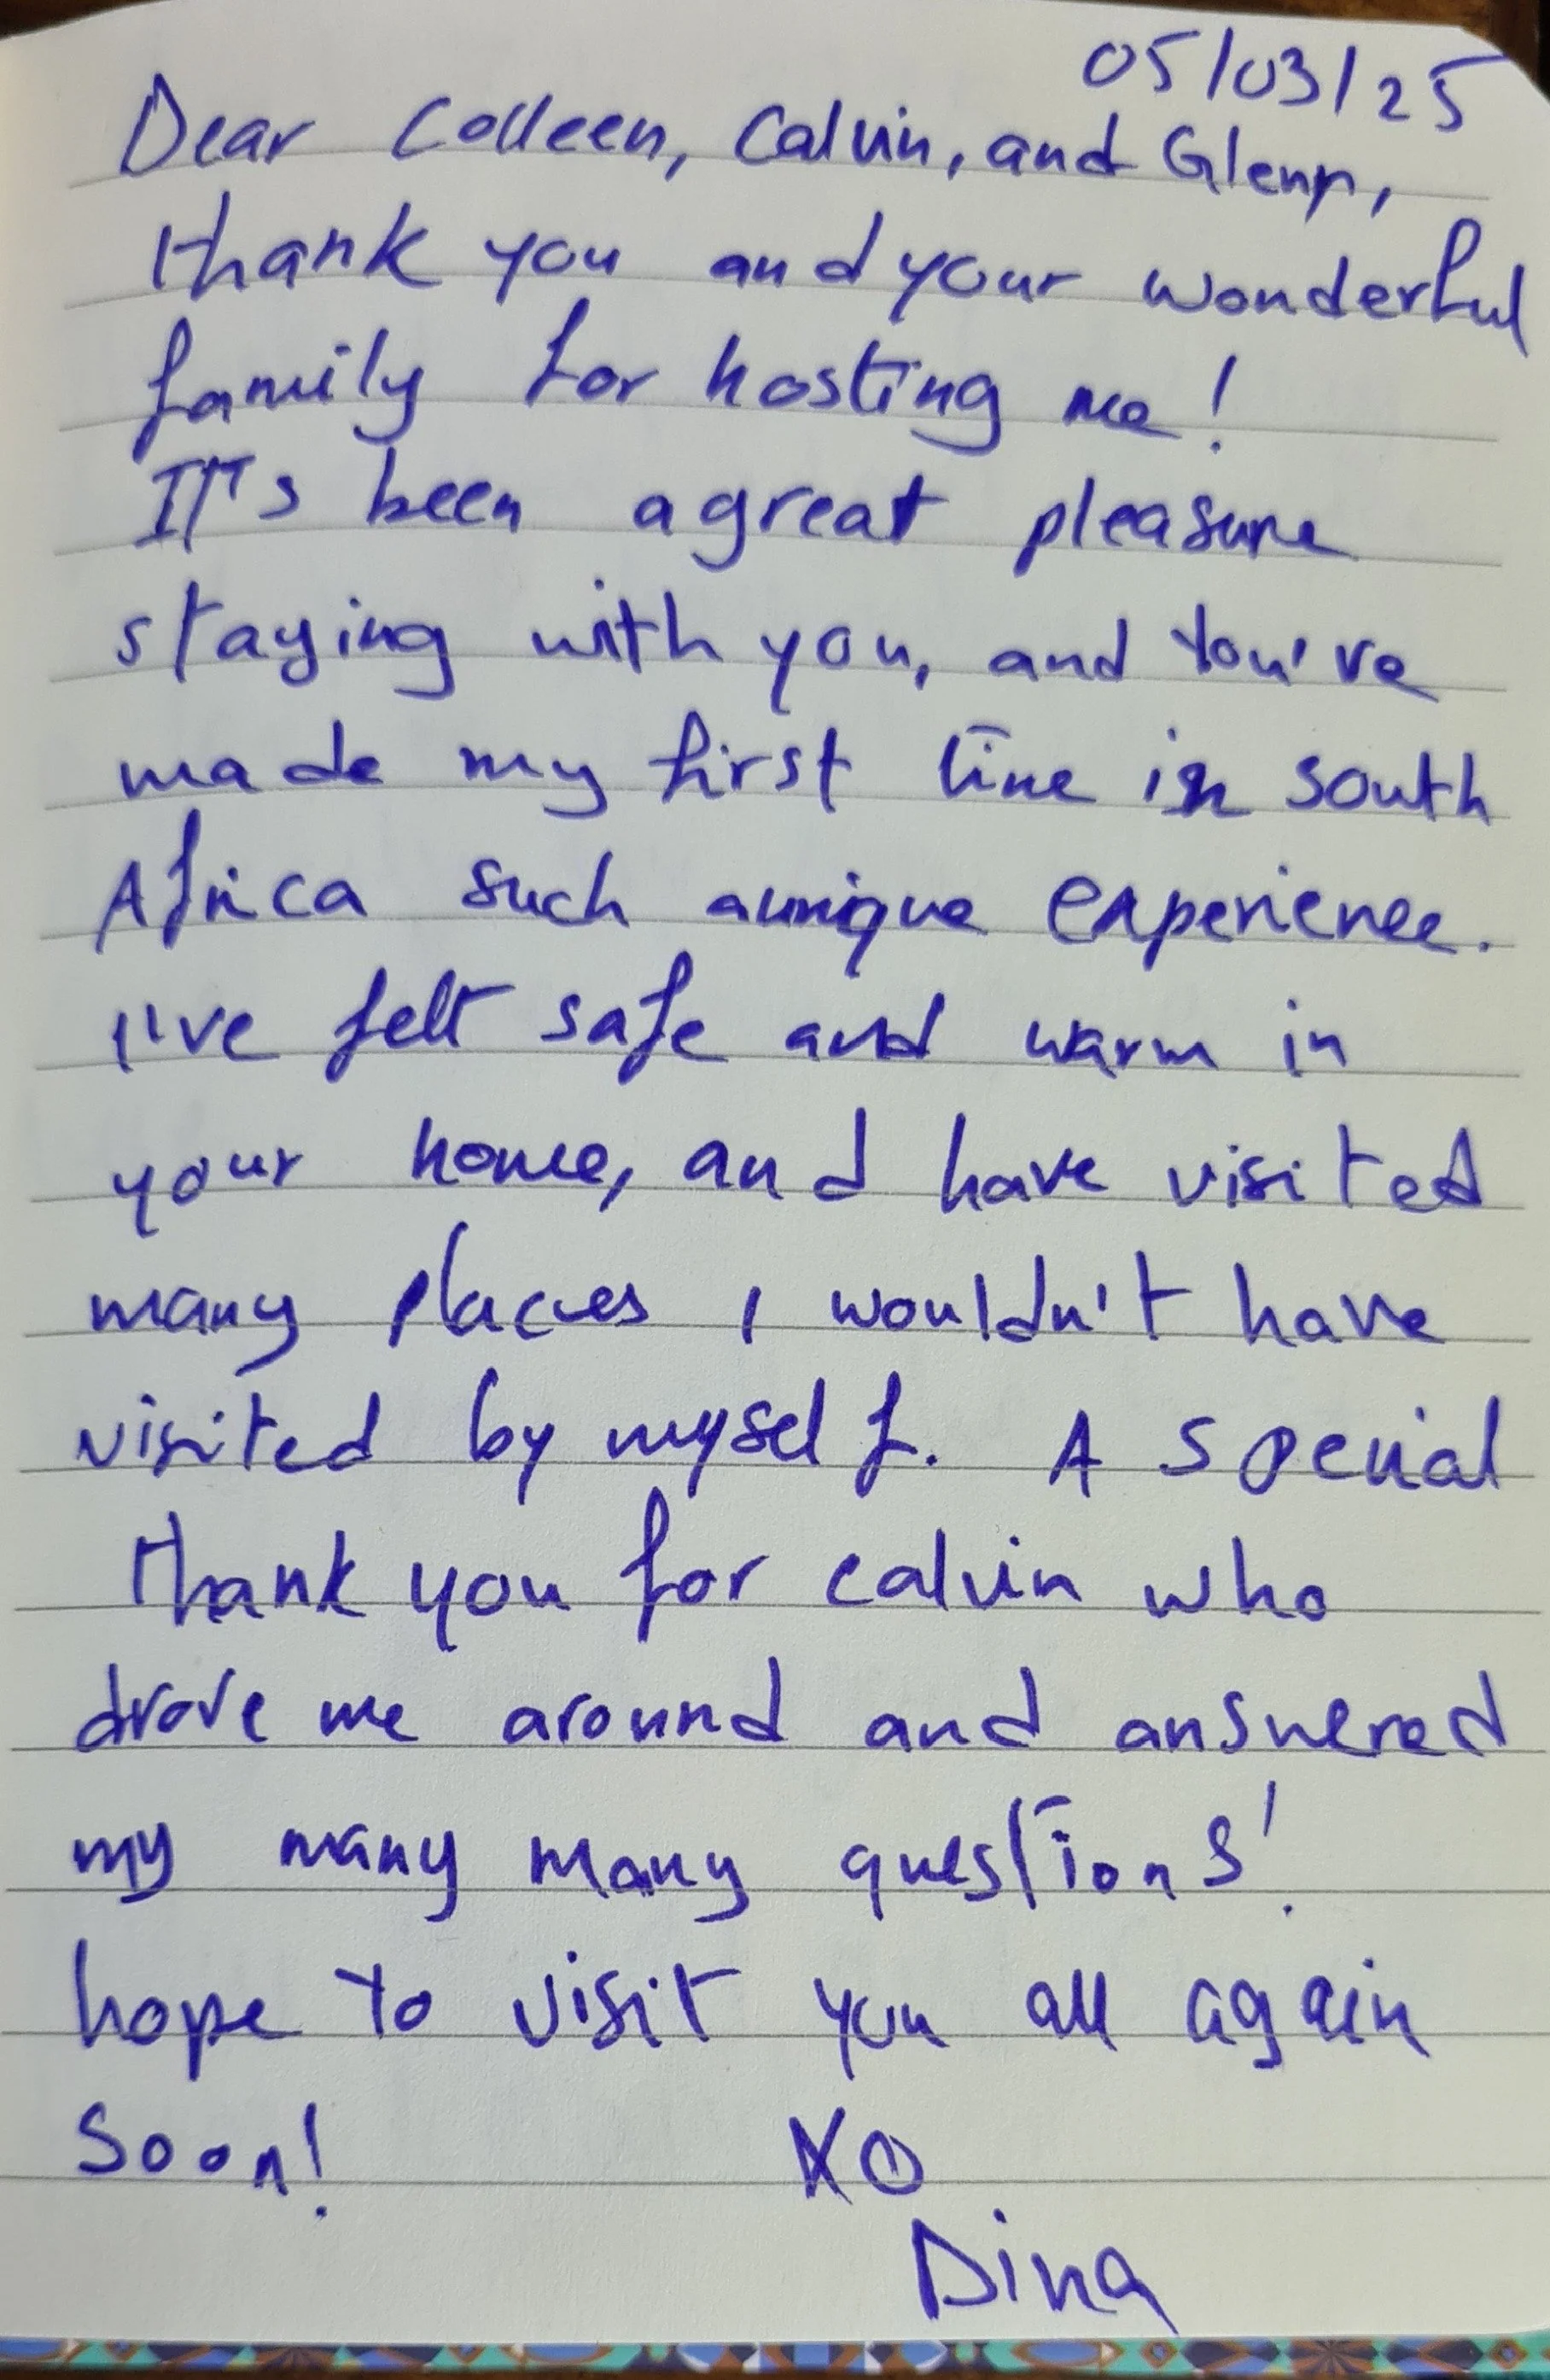 05/03/25
Dear Colleen, Calvin, and Glenn,
thank you and your wonderful
family for hosting me!
It's been a great pleasure
staying with you, and you've
made my first time in south
Africa such a unique experience.
I've felt safe and warm in
your home, and have visited
many places I wouldn't have
visited by myself. A special
thank you for calvin who
drove me around and answered
my many many questions!
hope to visit you all again
soon! XO
Dina